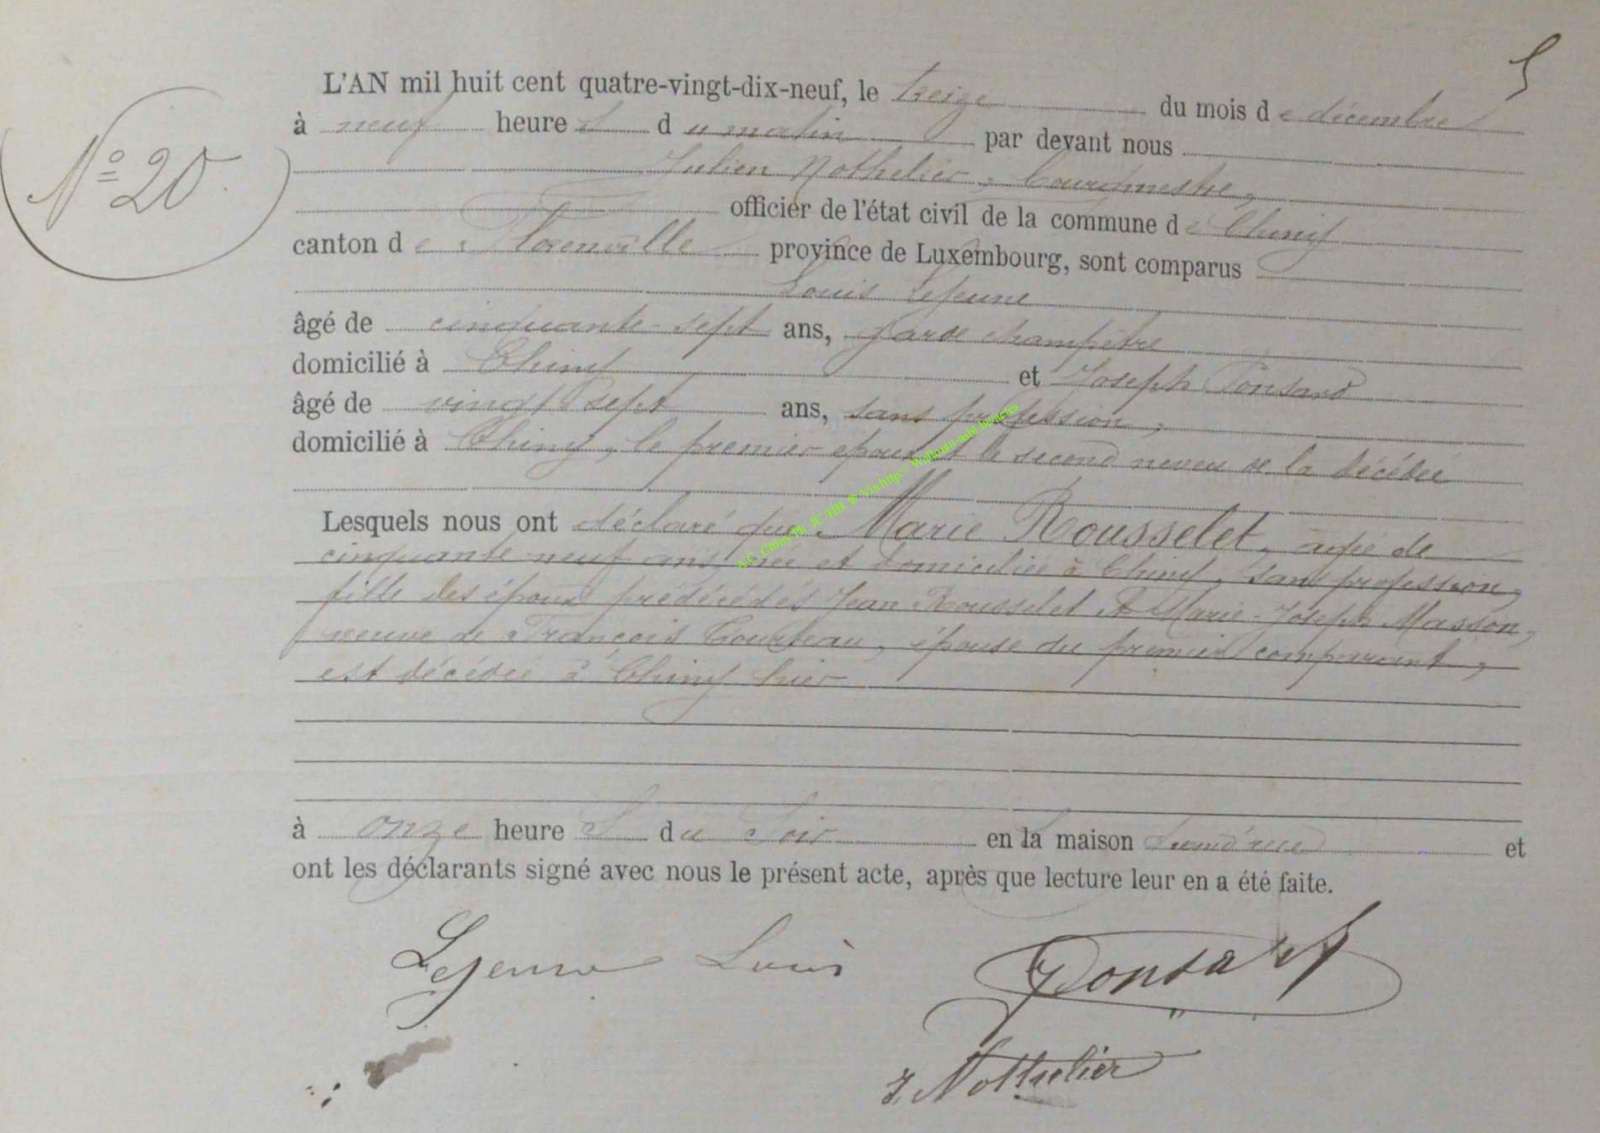 5
N° 20.
L'AN mil huit cent quatre-vingt-dix-neuf, le treize du mois de décembre
à neuf heures du matin par devant nous
Julien Nothelier, bourgmestre,
officier de l'état civil de la commune de Chiny
canton de Florenville province de Luxembourg, sont comparus
Louis Lejeune
âgé de cinquante-sept ans, garde champêtre
domicilié à Chiny et Joseph Ponsard
âgé de vingt sept ans, sans profession,
domicilié à Chiny, le premier époux et le second neveu de la décédée
Lesquels nous ont déclaré que Marie Rousselet, agée de
cinquante neuf ans, née et domiciliée à Chiny, sans profession,
fille des époux prédécédés Jean Rousselet et Marie-Joseph Masson,
veuve de François Courteau, épouse du premier comparant,
est décédée à Chiny hier
à onze heures du soir en la maison et
ont les déclarants signé avec nous le présent acte, après que lecture leur en a été faite.
Lejeune Louis
Ponsard
J. Nothelier